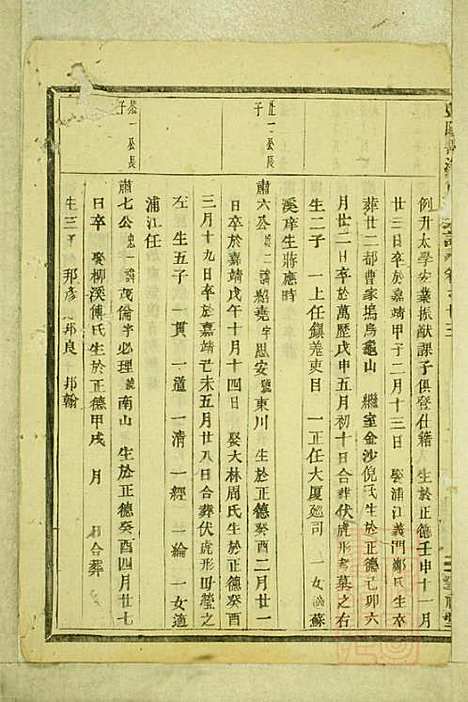 例升太學安業振猷課子俱登仕籍 生於正德壬申十一月
廿三日卒於嘉靖甲子二月十三日 娶浦江義門鄭氏生卒
葬廿二都曹家塢烏龜山 繼室金沙倪氏生於正德己卯六
月廿二日卒於萬歷戊申五月初十日合葬伏虎形 墓之右
生二子 一上任鎮羗吏目 一正任大厦廵司 一女 蘇
溪庠生蔣應時
恭一公長子
肅六公 諱紹堯字思安號東川 生於正德癸酉二月廿一
日卒於嘉靖戊午十月十四日 娶大林周氏生於正德癸酉
三月十九日卒於嘉靖己未五月廿八日合葬伏虎形 塋之
左 生五子 一貫 一道 一清 一經 一綸 一女適
浦江任
恭一公長子
肅七公 諱茂倫字必理號南山 生於正德癸酉四月廿七
日卒 娶柳溪傅氏生於正德甲戌 月 日合葬
生三子 邦彥 邦良 邦翰